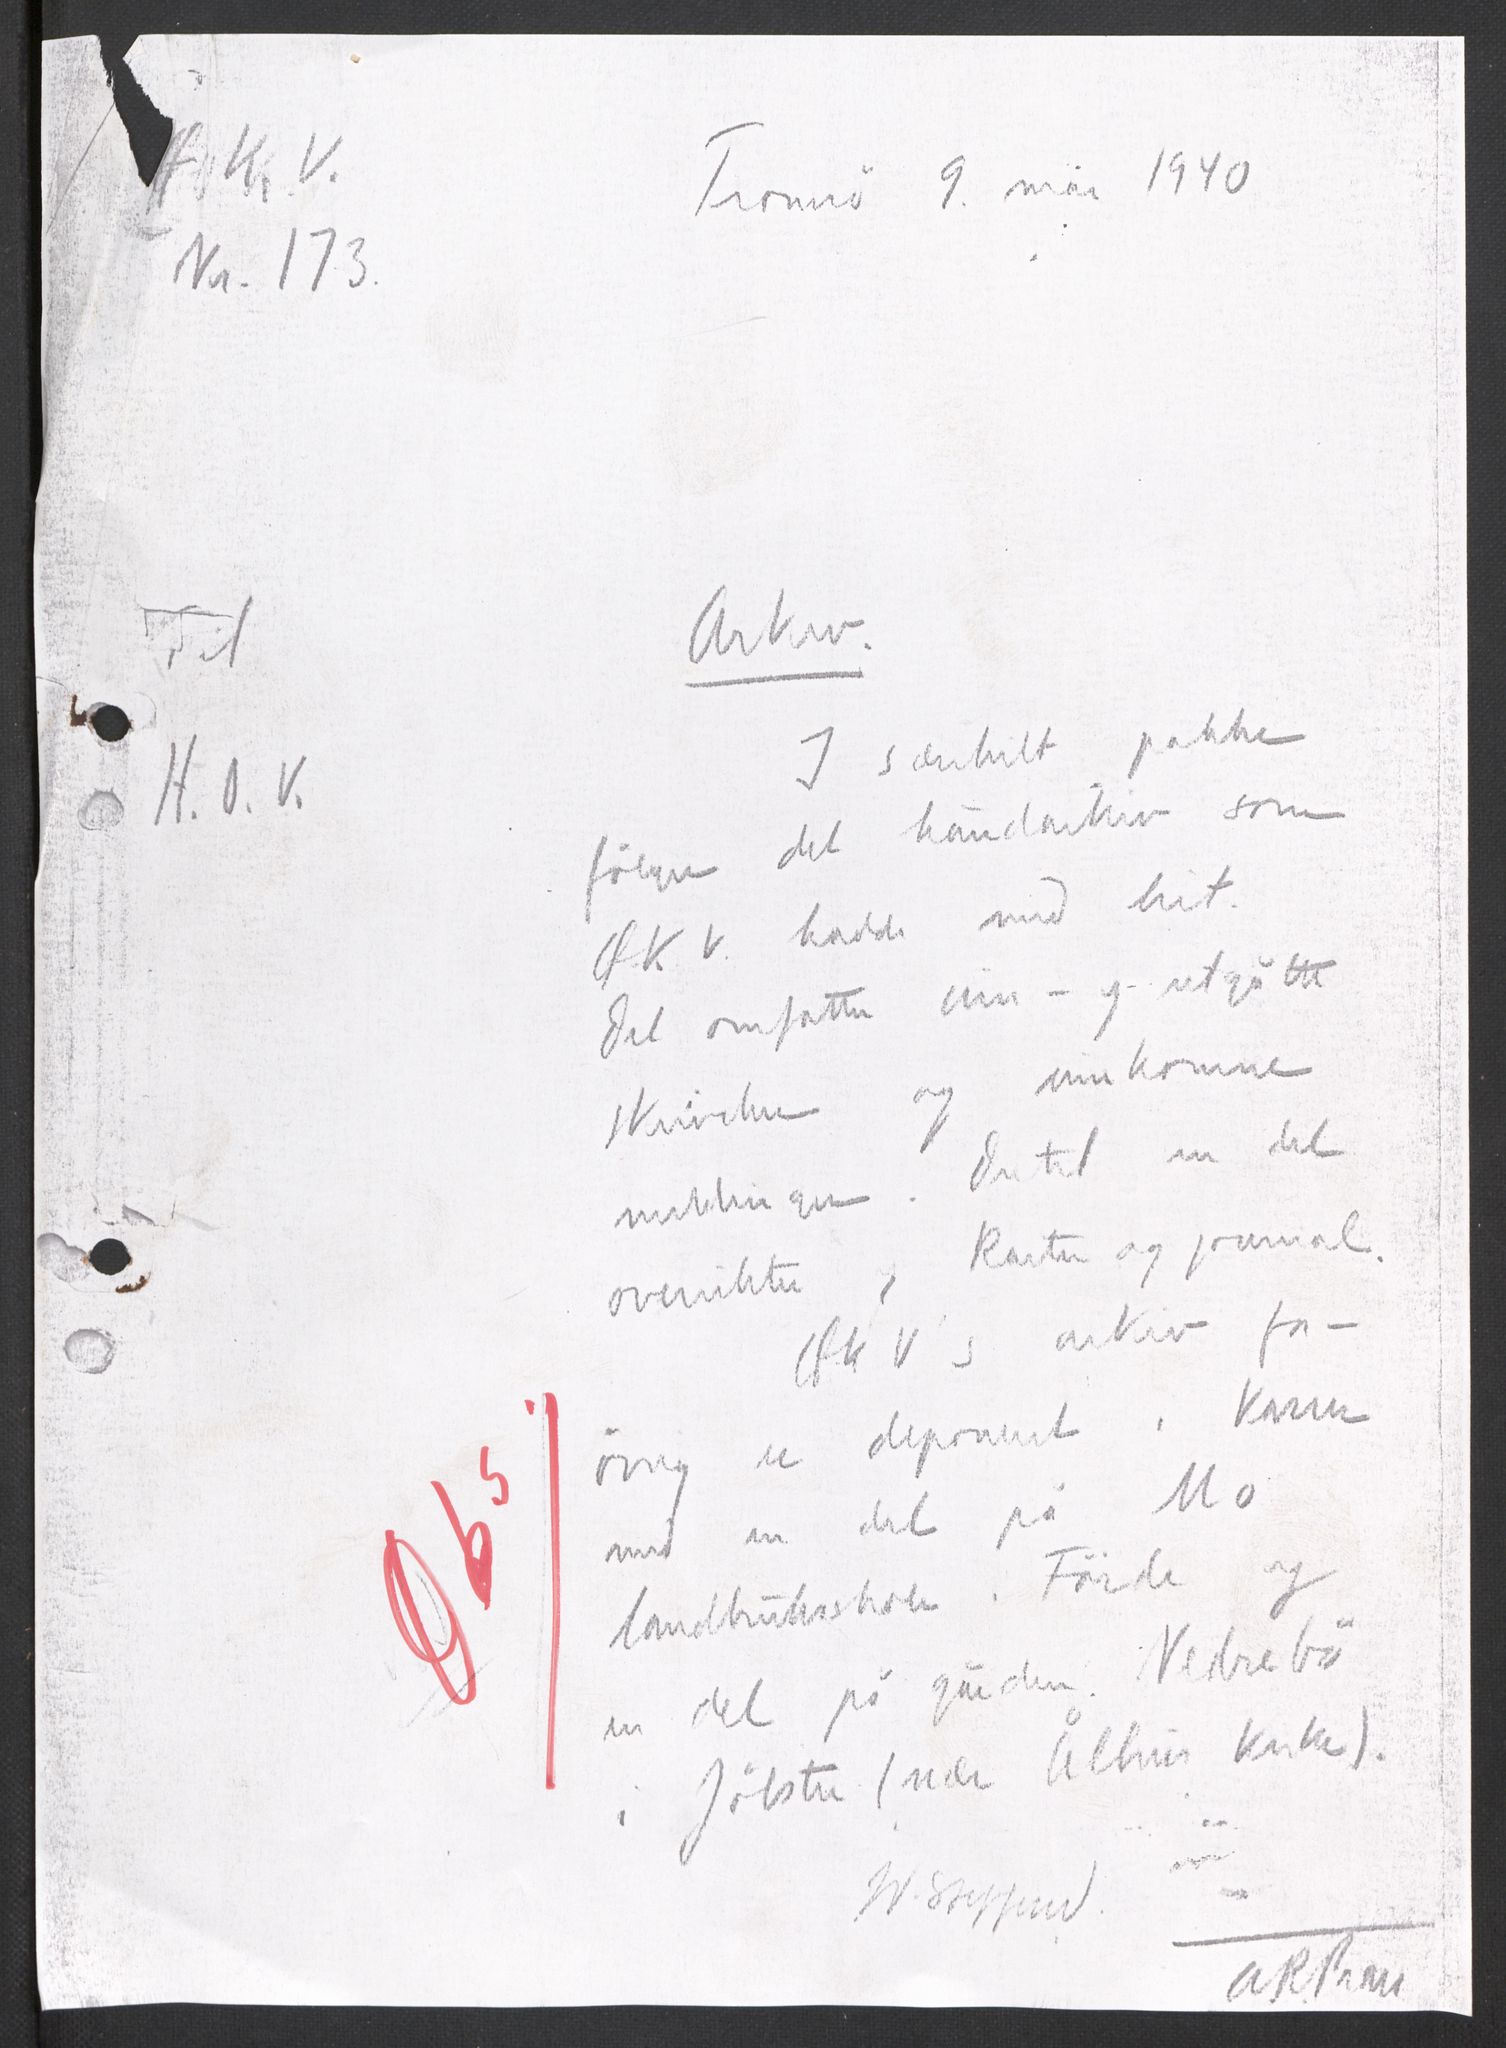 Ø.K.V.
Nr. 173.
Tromsö 9. mai 1940
Til
H.O.V.
Arkiv.
I særskilt pakke
fölger det håndarkiv som
ØK.V. hadde med hit.
Det omfatter inn- og utgåtte
skrivelser og innkomne
meldinger. Dertil en del
oversikter, karter og journal.
ØKV's arkiv for-
övrig er deponert i kasser
med en del på Mo
landbruksskole i Förde og
en del på gården Nedrebö
i Jölster (nær Ålhus kirke).
Obs!
W. Steffens.